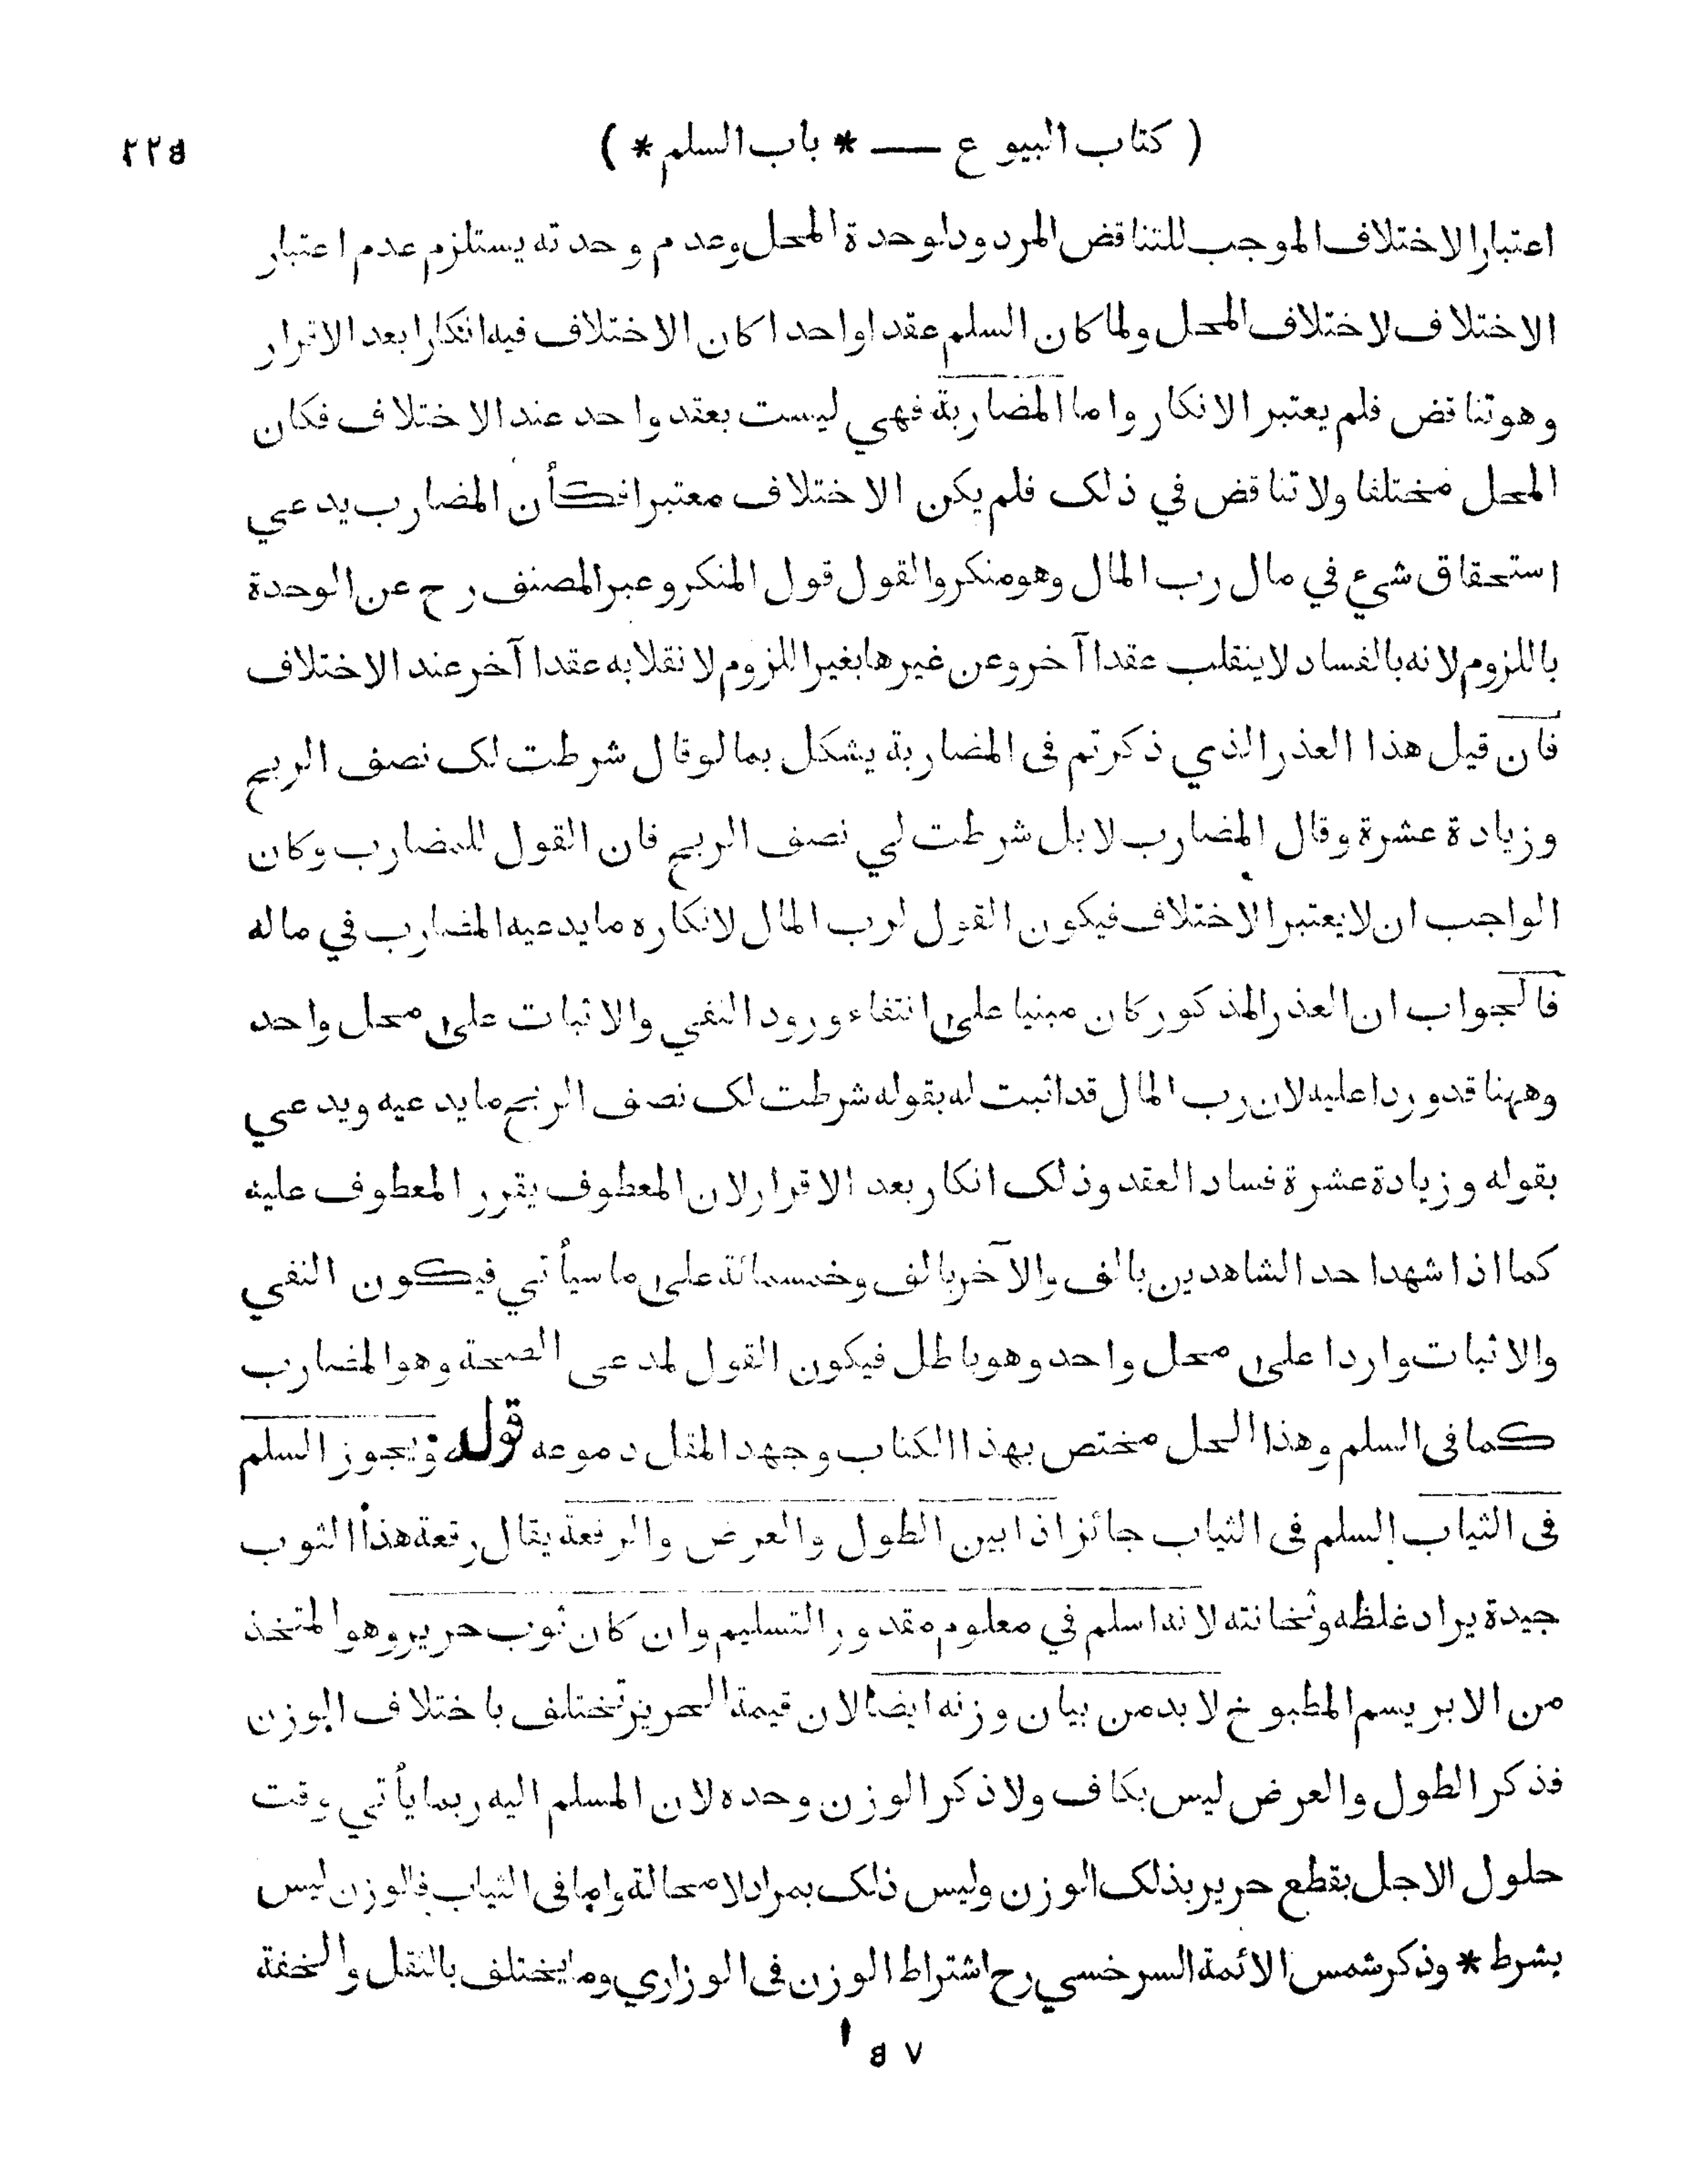 ( كتاب البيوع — * باب السلم * )
٢٢٥
اعتبار الاختلاف الموجب للتناقض المردود لوحدة المحل وعدم وحدته يستلزم عدم اعتبار
الاختلاف لاختلاف المحل ولما كان السلم عقدا واحدا كان الاختلاف فيه انكارا بعد الاقرار
وهو تناقض فلم يعتبر الانكار واما المضاربة فهي ليست بعقد واحد عند الاختلاف فكان
المحل مختلفا ولا تناقض في ذلك فلم يكن الاختلاف معتبرا فكأن المضارب يدعي
استحقاق شيء في مال رب المال وهو منكر والقول قول المنكر وعبر المصنف رح عن الوحدة
باللزوم لانه بالفساد لا ينقلب عقدا آخر وعن غيرها بغير اللزوم لانقلابه عقدا آخر عند الاختلاف
فان قيل هذا العذر الذي ذكرتم فى المضاربة يشكل بما لو قال شرطت لك نصف الربح
وزيادة عشرة وقال المضارب لا بل شرطت لي نصف الربح فان القول للمضارب وكان
الواجب ان لا يعتبر الاختلاف فيكون القول لرب المال لانكاره ما يدعيه المضارب في ماله
فالجواب ان العذر المذكور كان مبنيا على انتفاء ورود النفي والاثبات على محل واحد
وههنا قد وردا عليه لان رب المال قد اثبت له بقوله شرطت لك نصف الربح ما يدعيه ويدعي
بقوله وزيادة عشرة فساد العقد وذلك انكار بعد الاقرار لان المعطوف يقرر المعطوف عليه
كما اذا شهد احد الشاهدين بالف والآخر بالف وخمسمائة على ما سيأتي فيكون النفي
والاثبات واردا على محل واحد وهو باطل فيكون القول لمدعى الصحة وهو المضارب
كما فى السلم وهذا الحل مختص بهذا الكتاب وجهد المقل دموعه قوله ويجوز السلم
فى الثياب السلم فى الثياب جائز اذا بين الطول والعرض والرقعة يقال رقعة هذا الثوب
جيدة يراد غلظه وثخانته لانه اسلم في معلوم مقدور التسليم وان كان ثوب حرير وهو المتخذ
من الابريسم المطبوخ لا بد من بيان وزنه ايضا لان قيمة الحرير تختلف باختلاف الوزن
فذكر الطول والعرض ليس بكاف ولا ذكر الوزن وحده لان المسلم اليه ربما يأتي وقت
حلول الاجل بقطع حرير بذلك الوزن وليس ذلك بمراد لا محالة واما فى الثياب فالوزن ليس
بشرط * وذكر شمس الائمة السرخسي رح اشتراط الوزن فى الوزاري وما يختلف بالثقل والخفة
٥٧